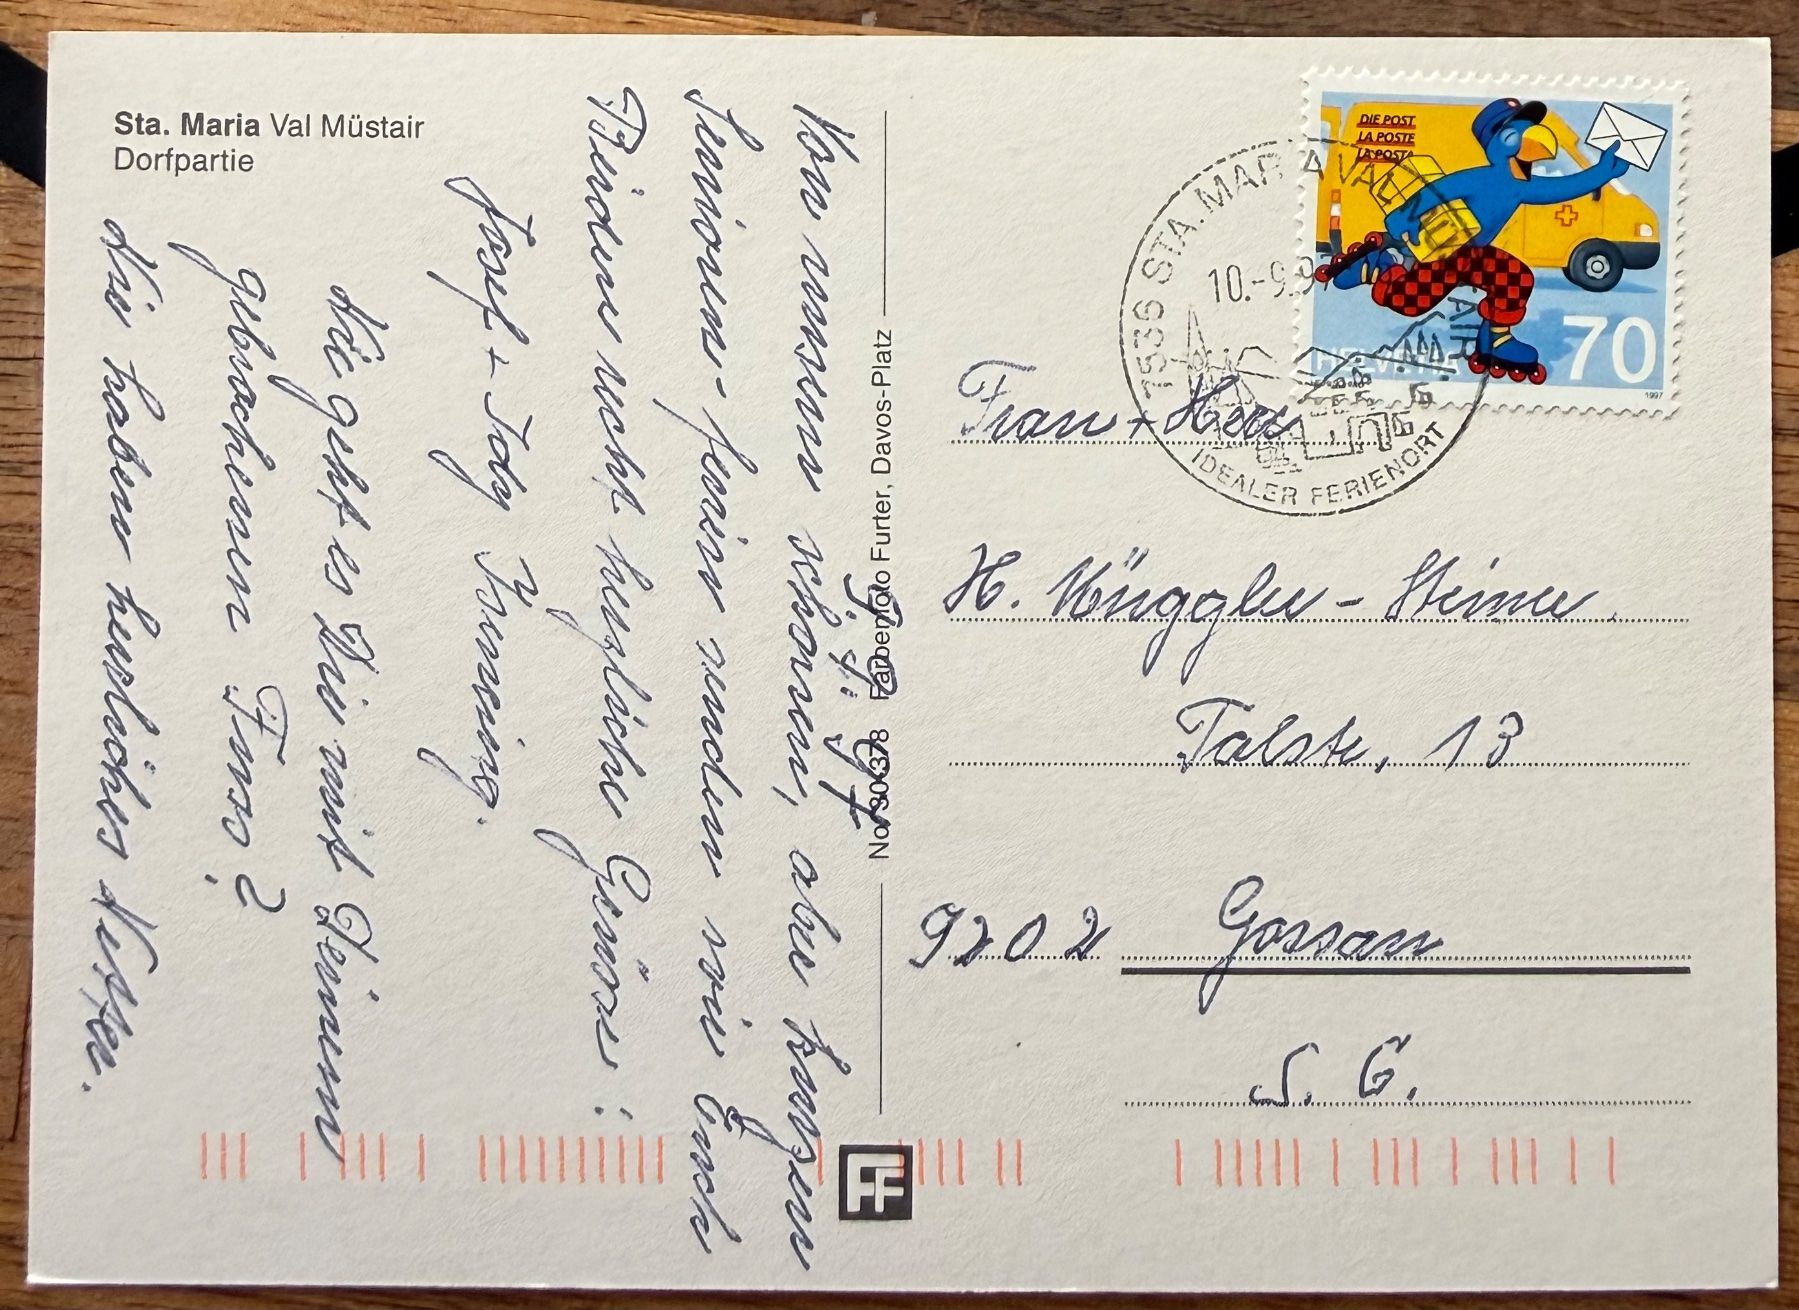 Sta. Maria Val Müstair
Dorfpartie
9. 9. 97
Von unsern schönen, aber kurzen
Senioren-ferien senden wir Euch
Beiden recht herzliche Grüsse:
Josef + Idy
Wie geht es Dir mit Deinem
gebrochenen Fuss?
Wir haben herrliches Wetter.
No. 30 378 Farbenfoto Furter, Davos-Platz
FF
DIE POST
LA POSTE
LA POSTA
HELVETIA
70
1997
7536 STA. MARIA VAL MÜSTAIR
10.-9.97
IDEALER FERIENORT
Frau + Herr
H. Müggler-Steiner
Talstr. 13
9202 Gossau
S. G.